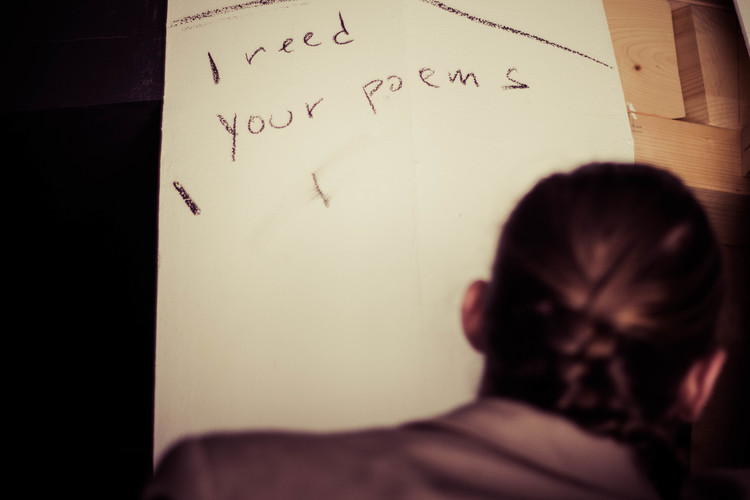 I reed
your poems